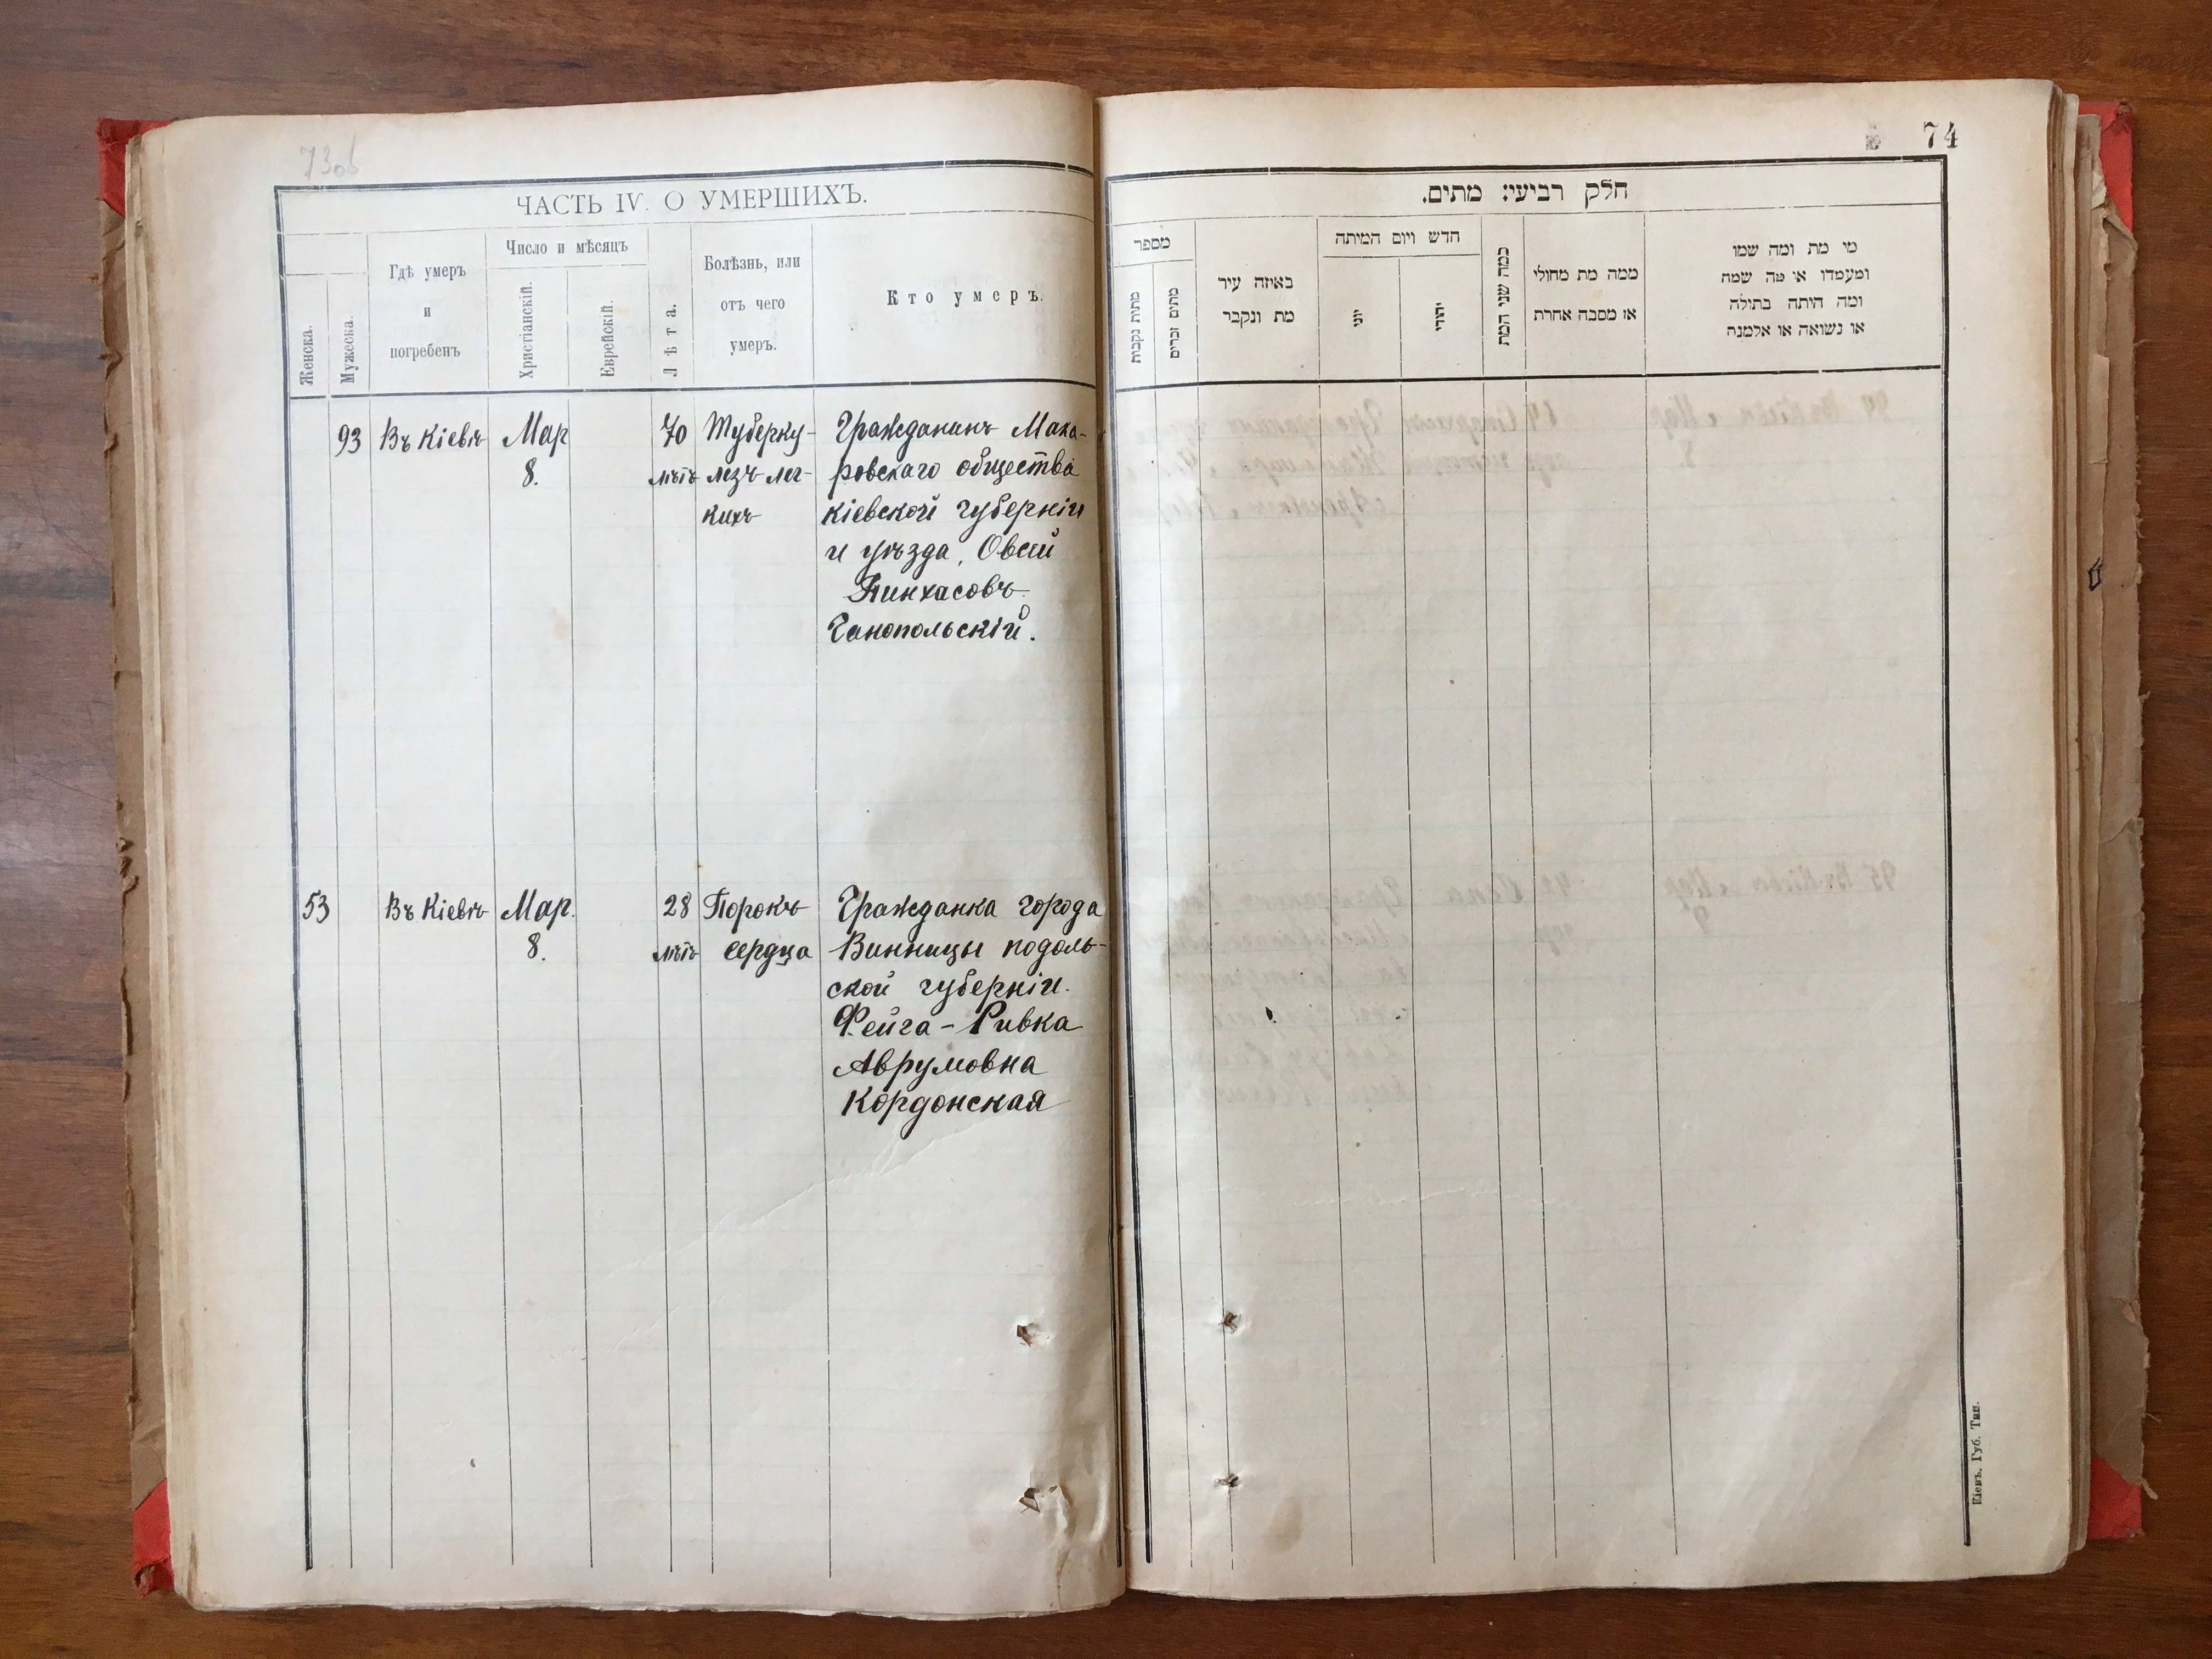 73об
ЧАСТЬ IV. О УМЕРШИХЪ.
Женска.
Мужеска.
Гдѣ умеръ
и
погребенъ
Число и мѣсяцъ
Христіанскій.
Еврейскій.
Лѣта.
Болѣзнь, или
отъ чего
умеръ.
Кто умеръ.
93 Въ Кіевѣ Мар 70 Туберку- Гражданинъ Мака-
8. лѣтъ лезъ лег- ровскаго общества
кихъ кіевской губерніи
и уѣзда, Овсей
Пинхасовъ
Ганопольскій.
53 Въ Кіевѣ Мар. 28 Порокъ Гражданка города
8. лѣтъ сердца Винницы подоль-
ской губерніи.
Фейга-Ривка
Аврумовна
Кордонская
74
חלק רביעי: מתים.
מספר
מתות נקבות
מתים זכרים
באיזה עיר
מת ונקבר
חדש ויום המיתה
יוני
יהודי
כמה שני המת
ממה מת מחולי
או מסבה אחרת
מי מת ומה שמו
ומעמדו או מה שמה
ומה היתה בתולה
או נשואה או אלמנה
Кіевъ. Губ. Тип.